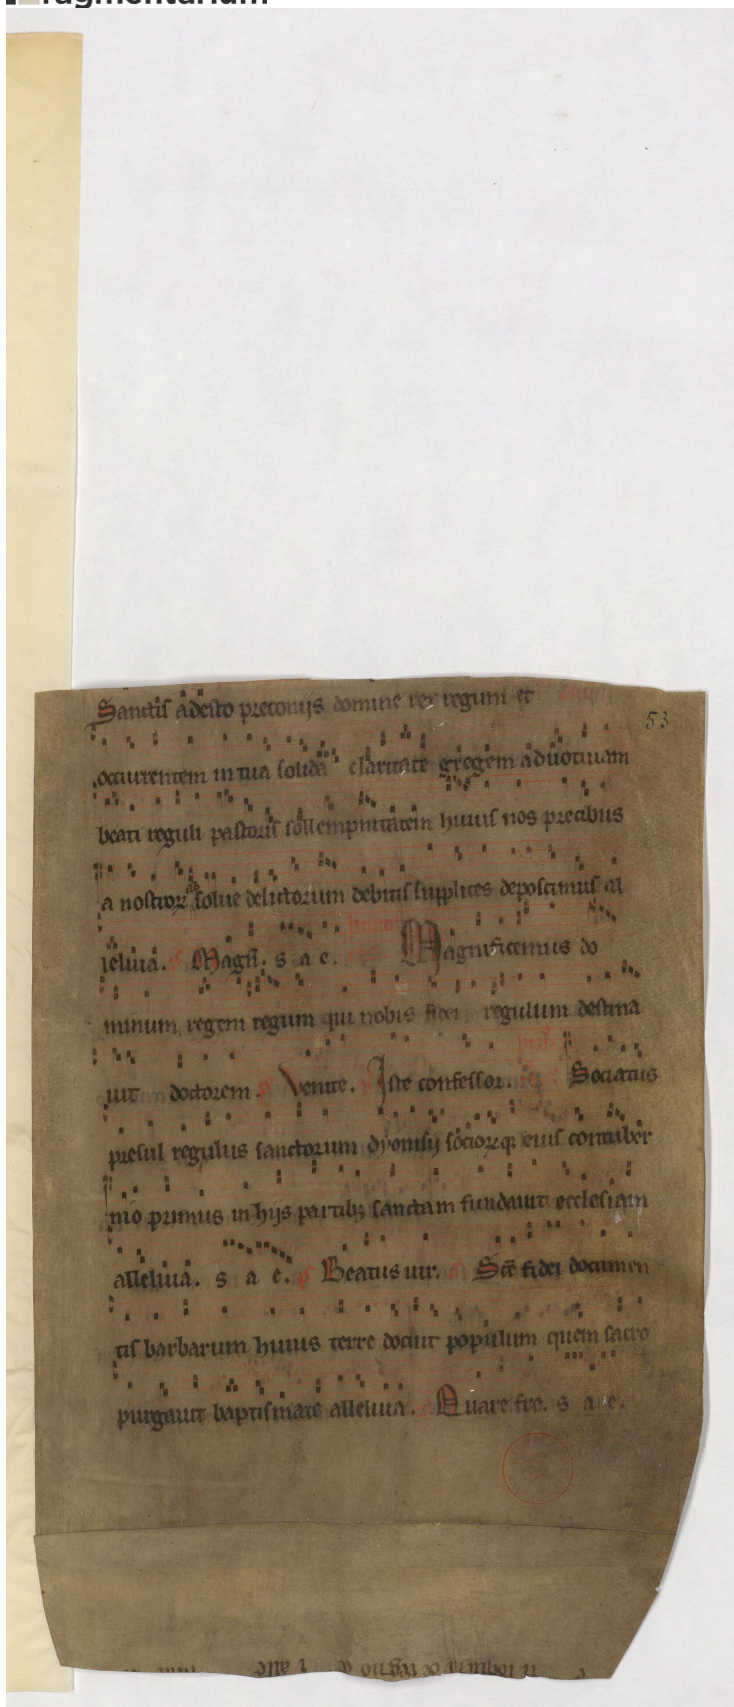 fragmentarium
Sanctis adesto preconijs domine rex regum et
53
occurrentem in tua solida claritate gregem aduotiuam
beati reguli pastoris sollempnitatem huius nos precibus
a nostroꝝ ab solue delictorum debitis supplices deposcimus al
leluia. ps Magñ. s a e. Magnificemus do
minum regem regum qui nobis fidei regulum destina
uit doctorem. ps Venite. Iste confessor. Sociatus
presul regulus sanctorum dyonisij socioꝝq; eius contuber
nio primus in hijs partibꝫ sanctam fundauit ecclesiam
alleluia. s a e. ps Beatus uir. Scē fidei documen
tis barbarum huius terre docuit populum quem sacro
purgauit baptismate alleluia. Quare fre. s a e.